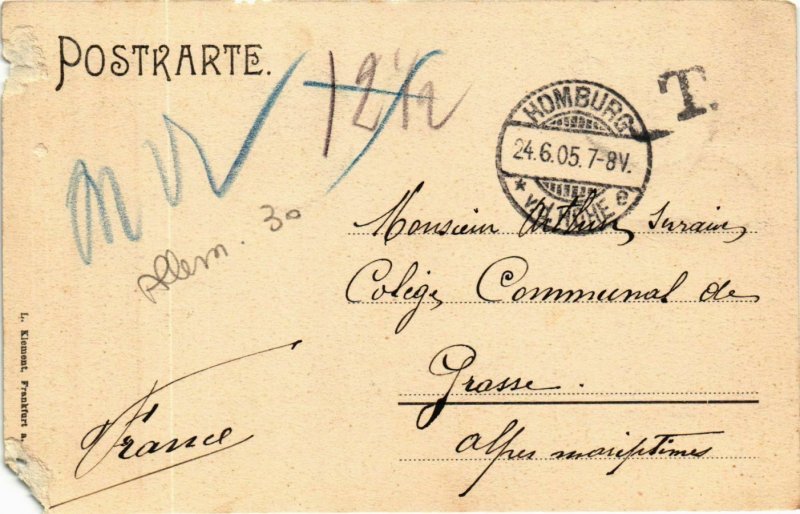 POSTKARTE.
12 1/2
T.
HOMBURG
24.6.05. 7-8V.
v.d. HÖHE
Allem. 30
Monsieur Arthur
Colége Communal de
Grasse.
Alpes maritimes
France
L. Klement, Frankfurt a.